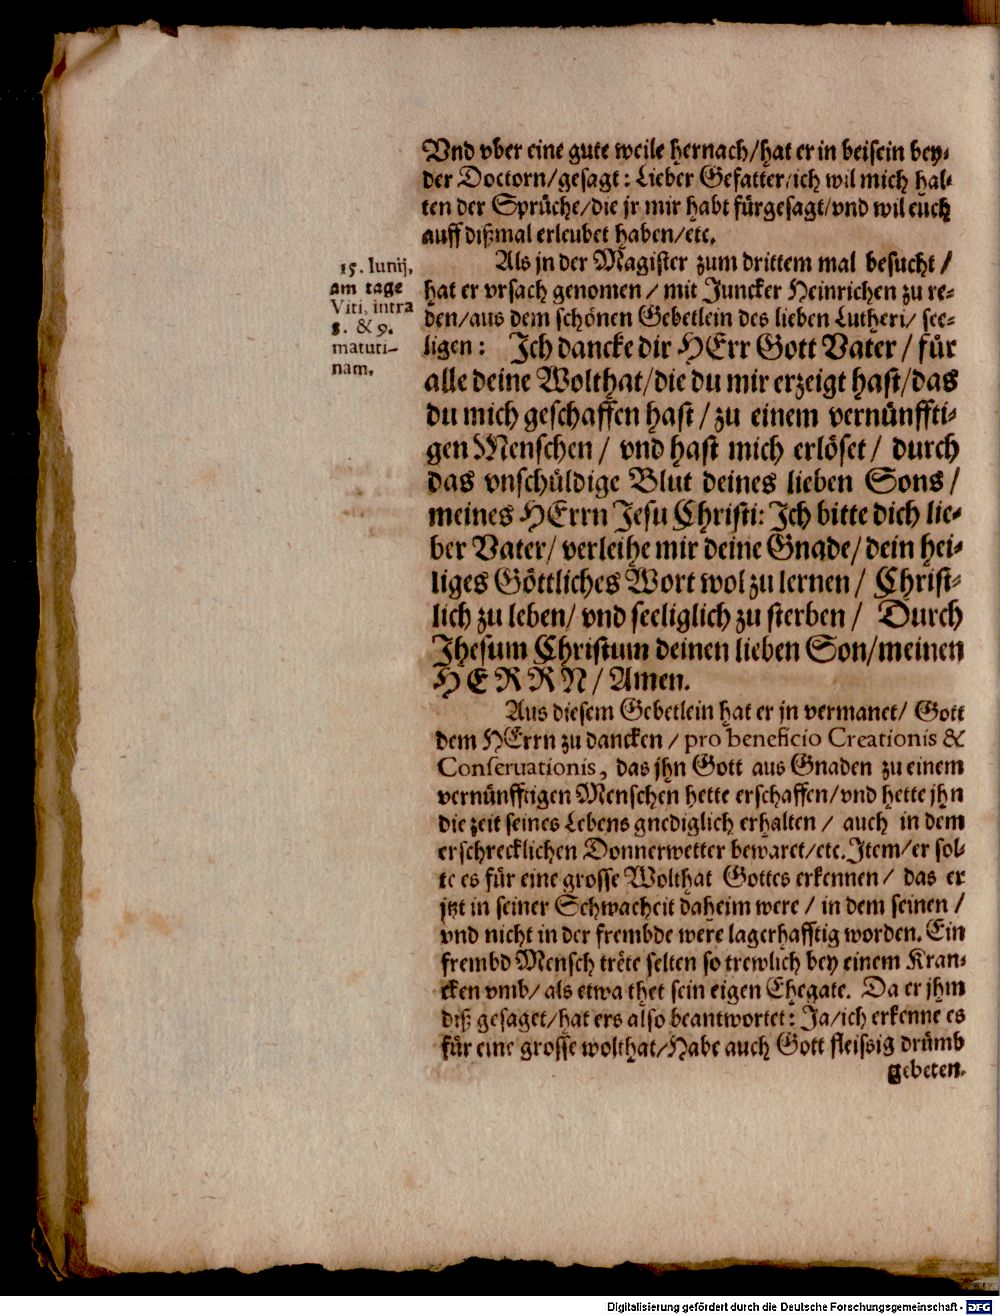 Vnd vber eine gute weile hernach/hat er in beisein bey-
der Doctorn/gesagt: Lieber Gefatter/ich wil mich hal-
ten der Sprüche/die jr mir habt fürgesagt/vnd wil euch
auff dißmal erleubet haben/etc.
15. Iunij,
am tage
Viti, intra
8. & 9.
matuti-
nam.
Als jn der Magister zum drittem mal besucht /
hat er vrsach genomen / mit Juncker Heinrichen zu re-
den/aus dem schönen Gebetlein des lieben Lutheri/ see-
ligen: Ich dancke dir HErr Gott Vater / für
alle deine Wolthat/die du mir erzeigt hast/das
du mich geschaffen hast / zu einem vernünffti-
gen Menschen / vnd hast mich erlöset / durch
das vnschüldige Blut deines lieben Sons /
meines HErrn Jesu Christi: Ich bitte dich lie-
ber Vater/ verleihe mir deine Gnade/ dein hei-
liges Göttliches Wort wol zu lernen / Christ-
lich zu leben/ vnd seeliglich zu sterben / Durch
Jhesum Christum deinen lieben Son/meinen
HERRN / Amen.
Aus diesem Gebetlein hat er jn vermanet/ Gott
dem HErrn zu dancken / pro beneficio Creationis &
Conseruationis, das jhn Gott aus Gnaden zu einem
vernünfftigen Menschen hette erschaffen/vnd hette jhn
die zeit seines Lebens gnediglich erhalten / auch in dem
erschrecklichen Donnerwetter bewaret/etc. Item/er sol-
te es für eine grosse Wolthat Gottes erkennen / das er
jtzt in seiner Schwacheit daheim were / in dem seinen /
vnd nicht in der frembde were lagerhafftig worden. Ein
frembd Mensch trête selten so trewlich bey einem Kran-
cken vmb/ als etwa thet sein eigen Ehegate. Da er jhm
diß gesaget/hat ers also beantwortet: Ja/ich erkenne es
für eine grosse wolthat/Habe auch Gott fleissig drümb
gebeten.
Digitalisierung gefördert durch die Deutsche Forschungsgemeinschaft - DFG